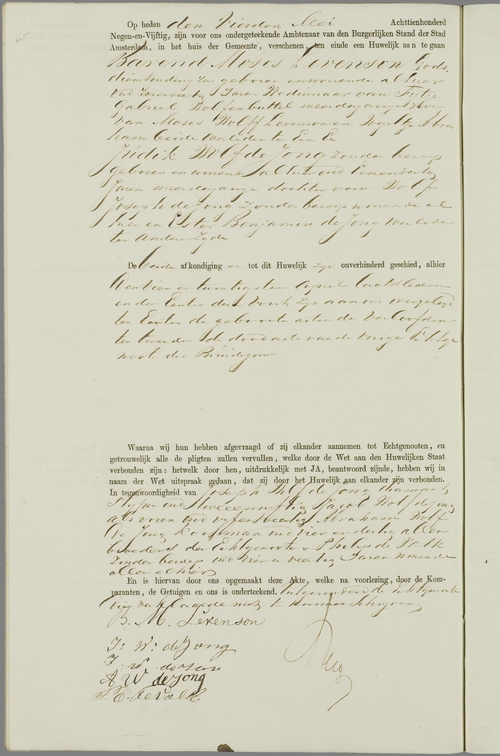 Op heden den Vierden Mei Achttienhonderd
Negen-en-Vijftig, zijn voor ons ondergeteekende Ambtenaar van den Burgerlijken Stand der Stad
Amsterdam, in het huis der Gemeente, verschenen, ten einde een Huwelijk aan te gaan
Barend Moses Levenson Gods
geboren en wonende alhier
Jaren Weduwnaar van
Gabriel Wolfenbuttel meerderjarige Zoon
van Moses Wolff Levenson en Vogeltje Abra
ham beide overleden ter Eenre
Judik Wolf de Jong zonder beroep
geboren en wonende alhier oud
Jaren meerderjarige dochter van Wolf
Joseph de Jong zonder beroep wonende al
hier en Ester Benjamin de Jong overleden
ter andere zyde
De beide afkondiging en tot dit Huwelijk zyn onverhinderd geschied, alhier
den vier en twintigsten April laatstleden
en den Eersten dezer zyn aan ons overgelegd
ten Eersten de geboorte acten der Verloofden
ten tweeden de dood acte van de vorige Echtge
noot des Bruidegoms
Waarna wij hun hebben afgevraagd of zij elkander aannemen tot Echtgenooten, en
getrouwelijk alle de pligten zullen vervullen, welke door de Wet aan den Huwelijken Staat
verbonden zijn: hetwelk door hen, uitdrukkelijk met JA, beantwoord zijnde, hebben wij in
naam der Wet uitspraak gedaan, dat zij door het Huwelijk aan elkander zijn verbonden.
In tegenwoordigheid van Joseph Wolf de Jong diamant
slyper oud tweeenvyftig Jacob Wolf de Jong
als voren oud vyfenveertig Abraham Wolf
de Jong Koopman oud vier en dertig allen
broeders der Echtgenoote & Philip de Valk
zonder beroep oud vier en veertig Jaren wonende
allen alhier
En is hiervan door ons opgemaakt deze Akte, welke na voorlezing, door de Kom-
paranten, de Getuigen en ons is onderteekend.
B. M. Levenson
J: W: de Jong
J W de Jong
A W de Jong
P E de Valk